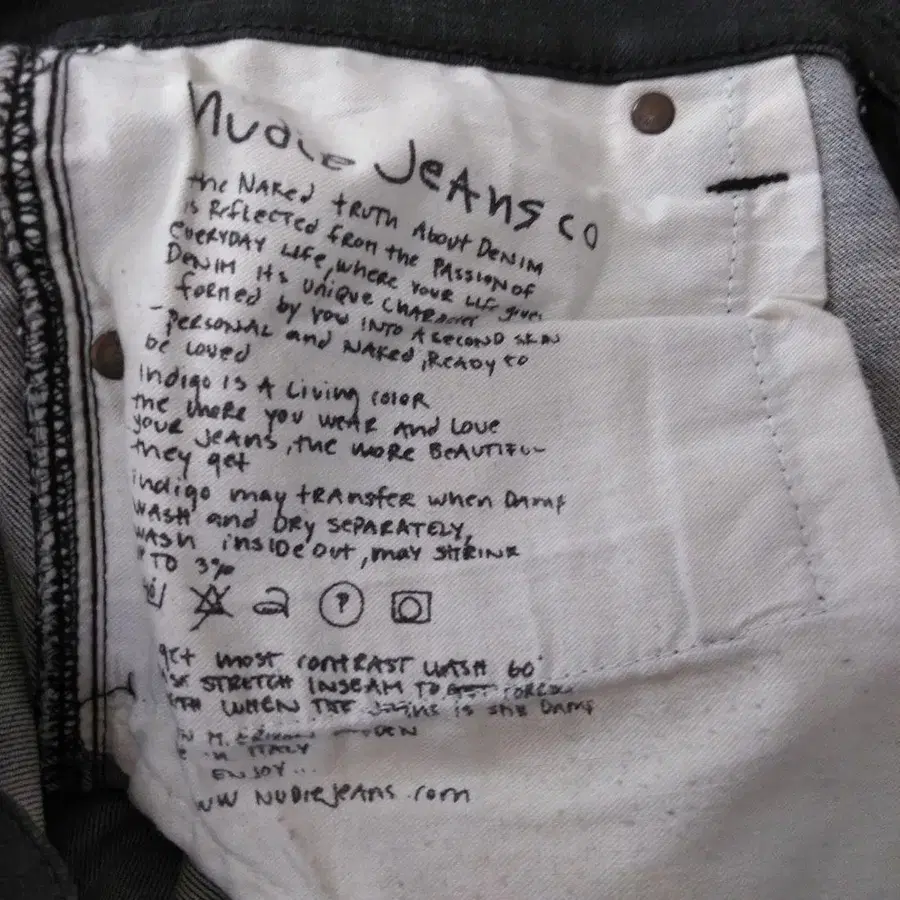 Nudie Jeans co
the NAKed tRUTH About DeNiM
is ReflecTED from the PASSiON of
EVERYDAY Life, where YOUR Life gives
DENIM its unique CHARActer
formed by you INTO A second skin
- PERSONAL and NAKed, READY to
be Loved
Indigo is A Living color
the more you weAR and Love
your JeANS, the more BeAUTIFUL
they get
indigo may tRAnsfer when DAmp
WASH and DRY SEPARATELY,
WASH insiDe out, may SHRINK
UP TO 3%
P
get most contRAST WASH 60°
STRETCH INSEAM TO
WHEN THE Jeans is still DAmp
M.
ITALY
ENJOY...
WWW NUDIEJEANS.com